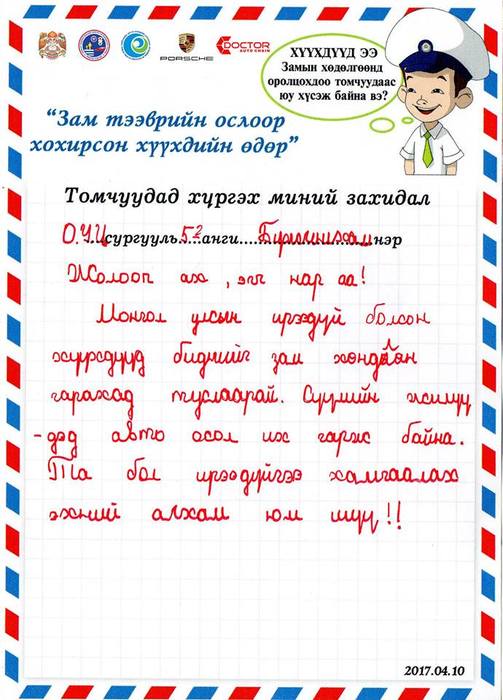 PORSCHE
DOCTOR
AUTO CHAIN
ХҮҮХДҮҮД ЭЭ
Замын хөдөлгөөнд
оролцохдоо томчуудаас
юу хүсэж байна вэ?
“Зам тээврийн ослоор
хохирсон хүүхдийн өдөр”
Томчуудад хүргэх миний захидал
О.У.Ц ....сургууль 5² ....анги........................нэр
Жолооч ах , эгч нар аа!
Монгол улсын ирээдүй болсон
хүүхдүүд биднийг зам хөндлөн
гарахад туслаарай. Сүүлийн жилүү
-дэд авто осол их гарж байна.
Та бол ирээдүйгээ хамгаалах
эхний алхам юм шүү !!
2017.04.10